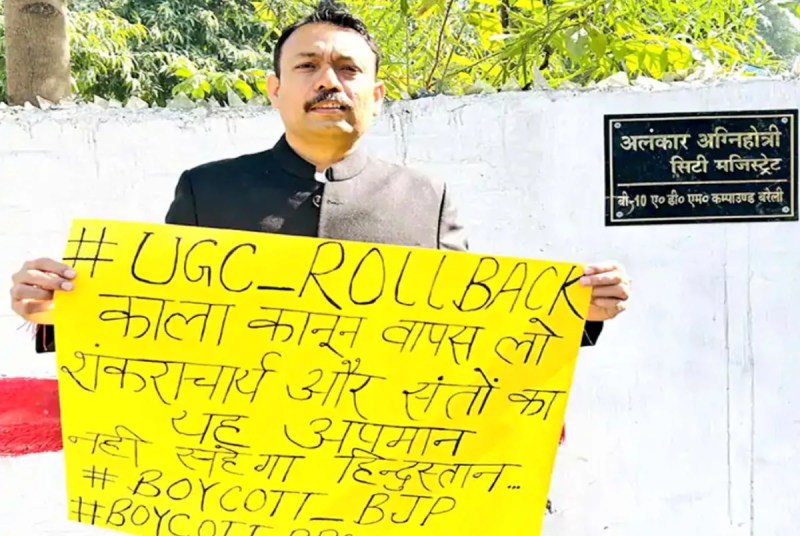 अलंकार अग्निहोत्री
सिटी मजिस्ट्रेट
बी-10 ए० डी० एम० कम्पाउण्ड बरेली
#UGC_ROLLBACK
काला कानून वापस लो
शंकराचार्य और संतों का
यह अपमान
नही सहेगा हिन्दुस्तान...
#BOYCOTT_BJP
#BOYCOTT